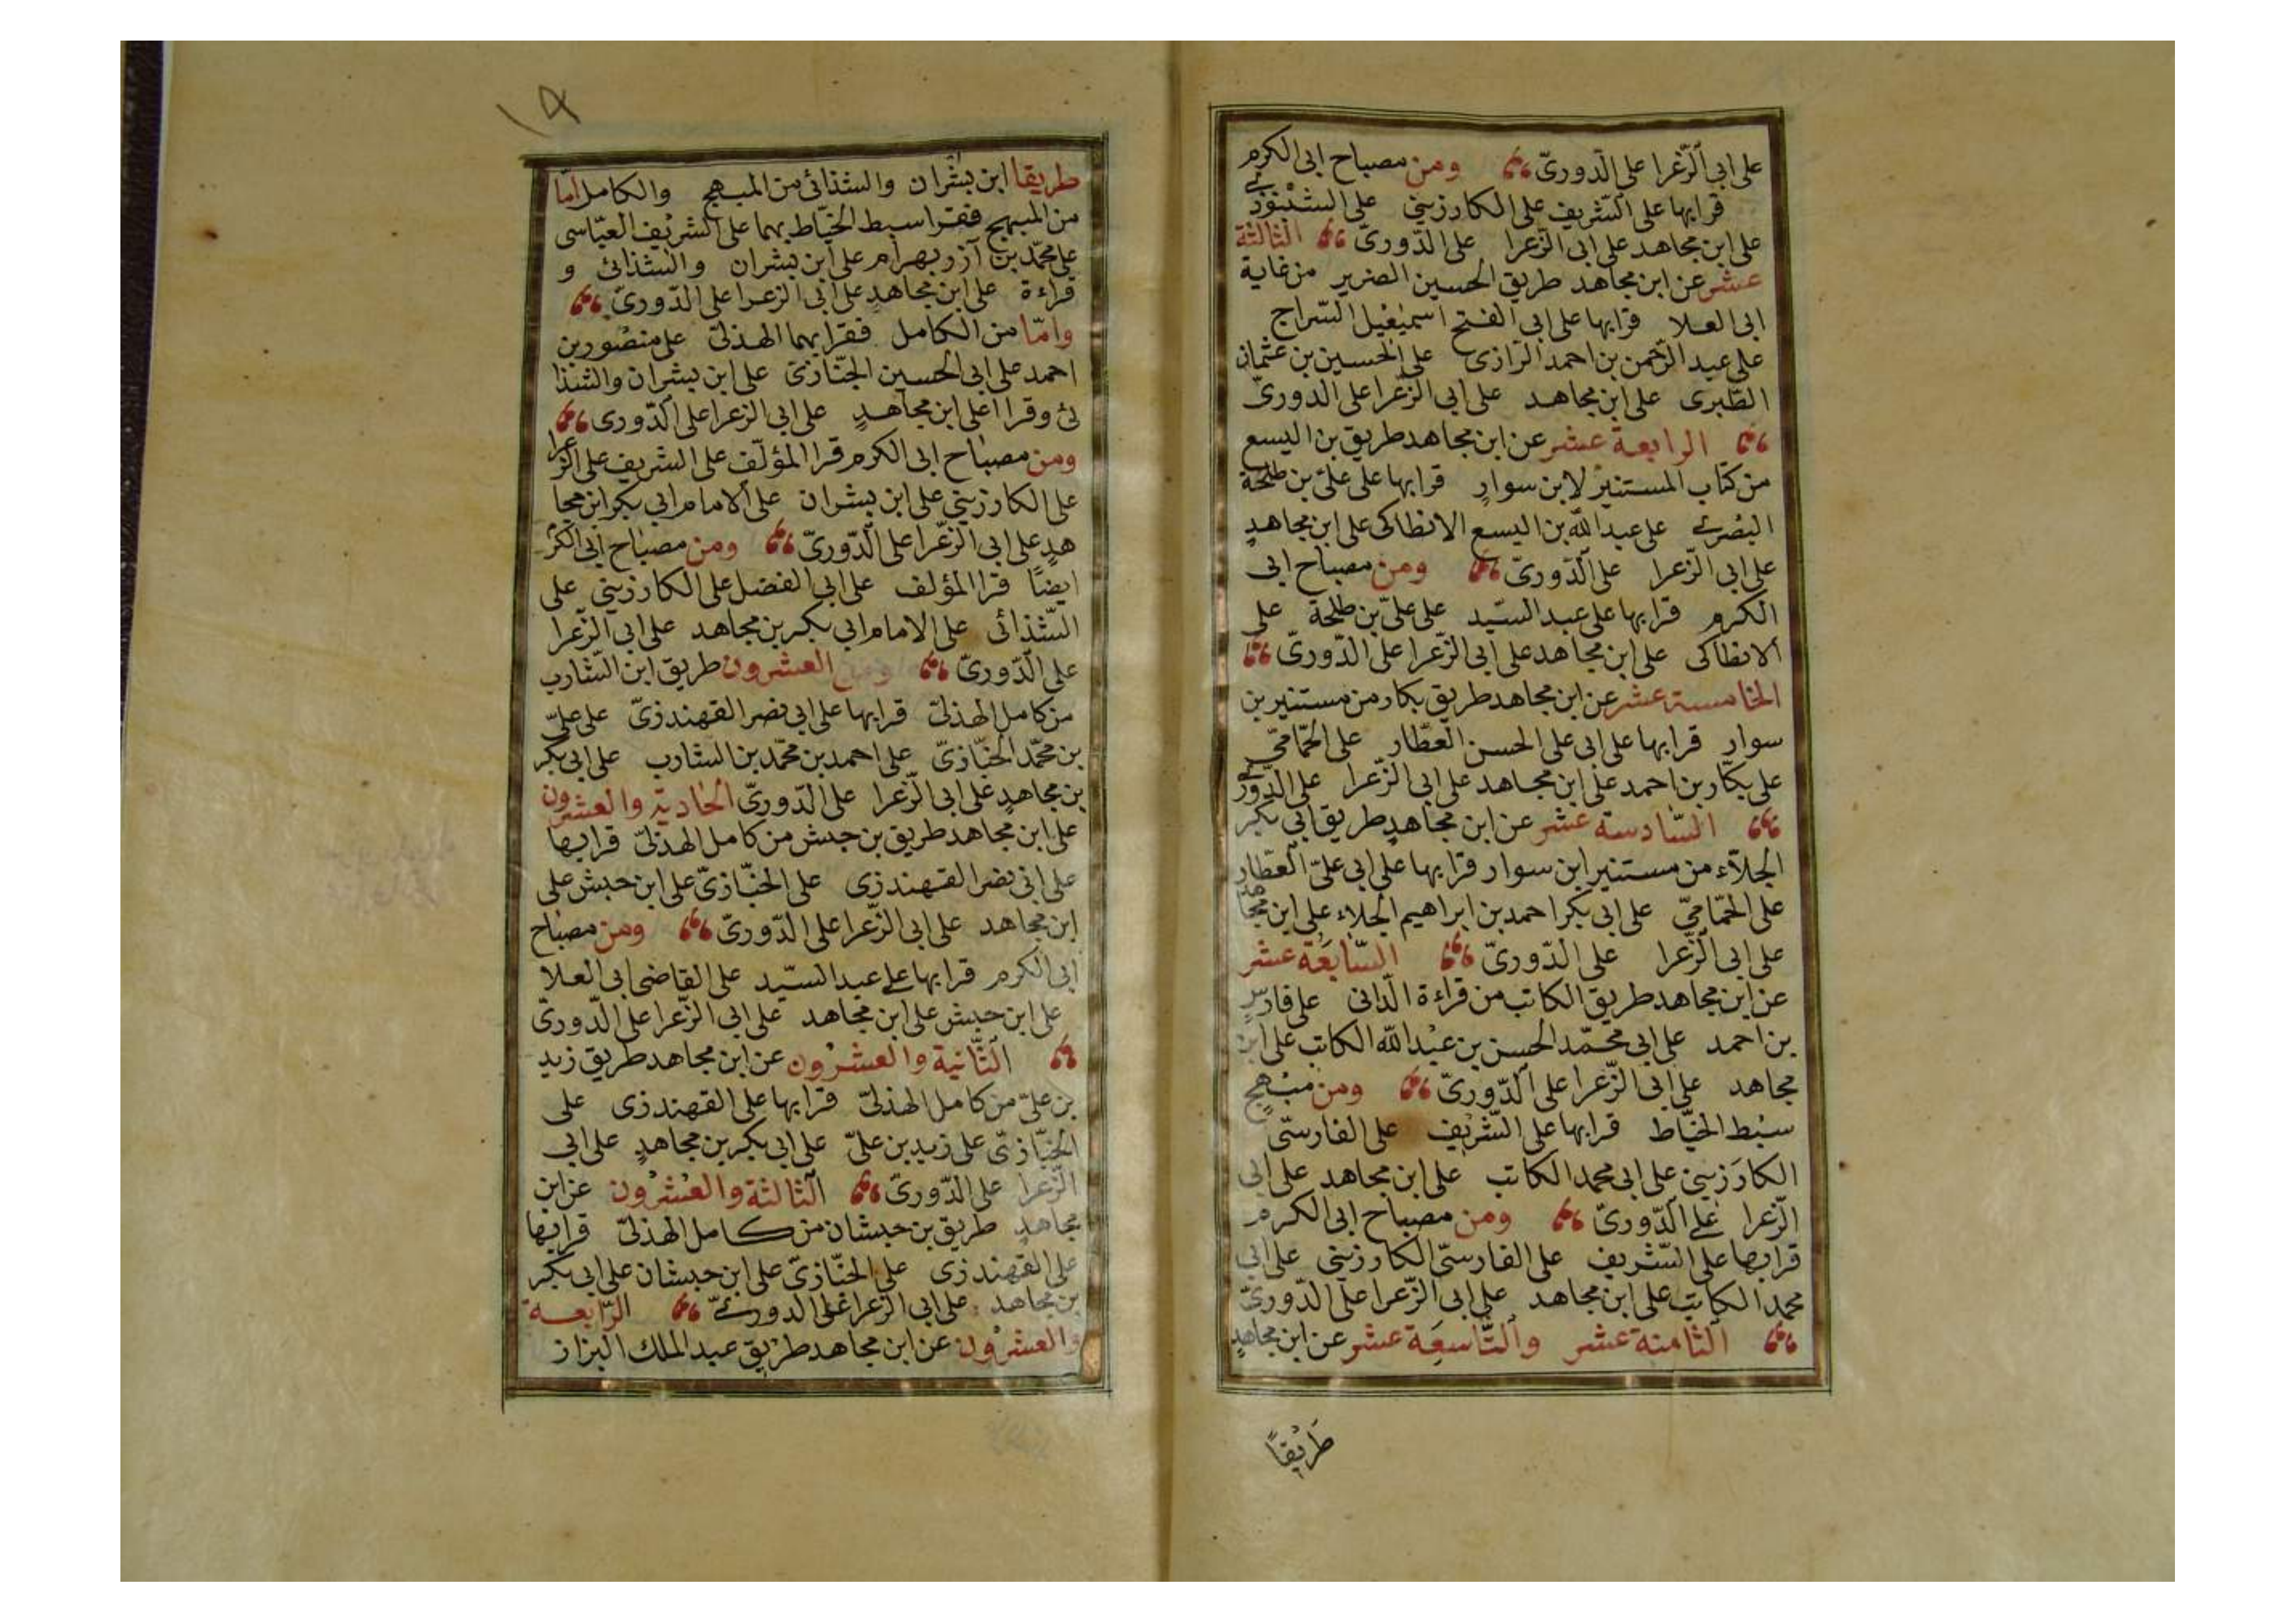 على ابى الزّعرا على الدّورىّ ومن مصباح ابى الكرم
قرا بها على الشّريف على الكارزينى على الشنبوذى
على ابن مجاهد على ابى الزّعرا على الدّورىّ الثالثة
عشر عن ابن مجاهد طريق الحسين الضرير من غاية
ابى العلا قرا بها على ابى الفتح اسمٰعيل السّراج
على عبد الرّحمن بن احمد الرّازى على الحسين بن عثمان
الطّبرى على ابن مجاهد على ابى الزّعرا على الدورىّ
الرابعة عشر عن ابن مجاهد طريق بن اليسع
من كتاب المستنير لابن سوارٍ قرا بها على علىّ بن طلحة
البصرى على عبد الله بن اليسع الانطاكى على ابن مجاهدٍ
على ابى الزّعرا على الدّورىّ ومن مصباح ابى
الكرم قرا بها على عبد السّيد على علىّ بن طلحة على
الانطاكى على ابن مجاهد على ابى الزّعرا على الدّورىّ
الخامسة عشر عن ابن مجاهد طريق بكار من مستنير بن
سوار قرا بها على ابى على الحسن العطّار على الحمّامىّ
على بكّار بن احمد على ابن مجاهد على ابى الزّعرا على الدّورى
السّادسة عشر عن ابن مجاهدٍ طريق ابى بكر
الجلّاء من مستنير ابن سوار قرا بها على ابى علىّ العطّار
على الحمّامىّ على ابى بكر احمد بن ابراهيم الجلاء على ابن مجاهد
على ابى الزّعرا على الدّورىّ السّابعة عشر
عن ابن مجاهد طريق الكاتب من قراءة الدّانى على فارسٍ
بن احمد على ابى محمّد الحسن بن عبد الله الكاتب على ابن
مجاهد على ابى الزّعرا على الدّورىّ ومن مبهجٍ
سبط الخيّاط قرا بها على الشّريف على الفارسّى
الكارَزينى على ابى محمد الكاتب على ابن مجاهد على ابى
الزّعرا على الدّورىّ ومن مصباح ابى الكرم
قرا بها على الشّريف على الفارسّى الكارزينى على ابى
محمد الكاتب على ابن مجاهد على ابى الزّعرا على الدّورىّ
الثامنة عشر والتّاسعَة عشر عن ابن مجاهدٍ
طَرِيقاً
١٩
طريقا ابن بشران والشذائى من المبهج والكامل امّا
من المبهج فقرا سبط الخيّاط بهما على الشريف العبّاسى
على محمّد بن آزر بهرام على ابن بشران والشذائى و
قراءة على ابن مجاهدٍ على ابى الزعرا على الدّورىّ
وامّا من الكامل فقرا بهما الهذلىّ على منصور بن
احمد على ابى الحسين الخبّازىّ على ابن بشران والشذا
ئى وقراا على ابن مجاهدٍ على ابى الزعرا على الدّورى
ومن مصباح ابى الكرم قرا المؤلّف على الشريف على
على الكارزينى على ابن بشران على الامام ابي بكر ابن مجا
هدٍ على ابى الزّعرا على الدّورىّ ومن مصباح ابى الكر
ايضًا قرا المؤلف على ابى الفضل على الكارزينى على
الشّذائى على الامام ابي بكر بن مجاهد على ابى الزّعرا
على الدّورىّ العشرون طريق ابن الشّارب
من كامل الهذلىّ قرا بها على ابى نصر القهندزىّ على علىّ
بن محمّد الخبّازىّ على احمد بن محمّد بن الشارب على ابى بكر
بن مجاهدٍ على ابى الزّعرا على الدّورىّ الحادية والعشرون
على ابن مجاهد طريق بن حبش من كامل الهذلىّ قرا بها
على ابى نصر القهندزى على الخبّازىّ على ابن حبش على
ابن مجاهد على ابى الزّعرا على الدّورىّ ومن مصباح
ابى الكرم قرا بها على عبد السّيد على القاضى ابى العلا
على ابن حبش على ابن مجاهد على ابى الزّعرا على الدّورىّ
الثّانية والعشرون عن ابن مجاهد طريق زيد
بن علىّ من كامل الهذلىّ قرا بها على القهندزى على
الخبّازىّ على زيد بن علىّ على ابى بكر بن مجاهدٍ على ابى
الزّعرا على الدّورىّ الثالثة والعشرون عن ابن
مجاهدٍ طريق بن حبشان من كامل الهذلىّ قرا بها
على القهندزى على الخبّازىّ على ابن حبشان على ابى بكر
بن مجاهد على ابى الزعرا على الدورىّ الرّابعة
والعشرون عن ابن مجاهد طريق عبد الملك البزاز